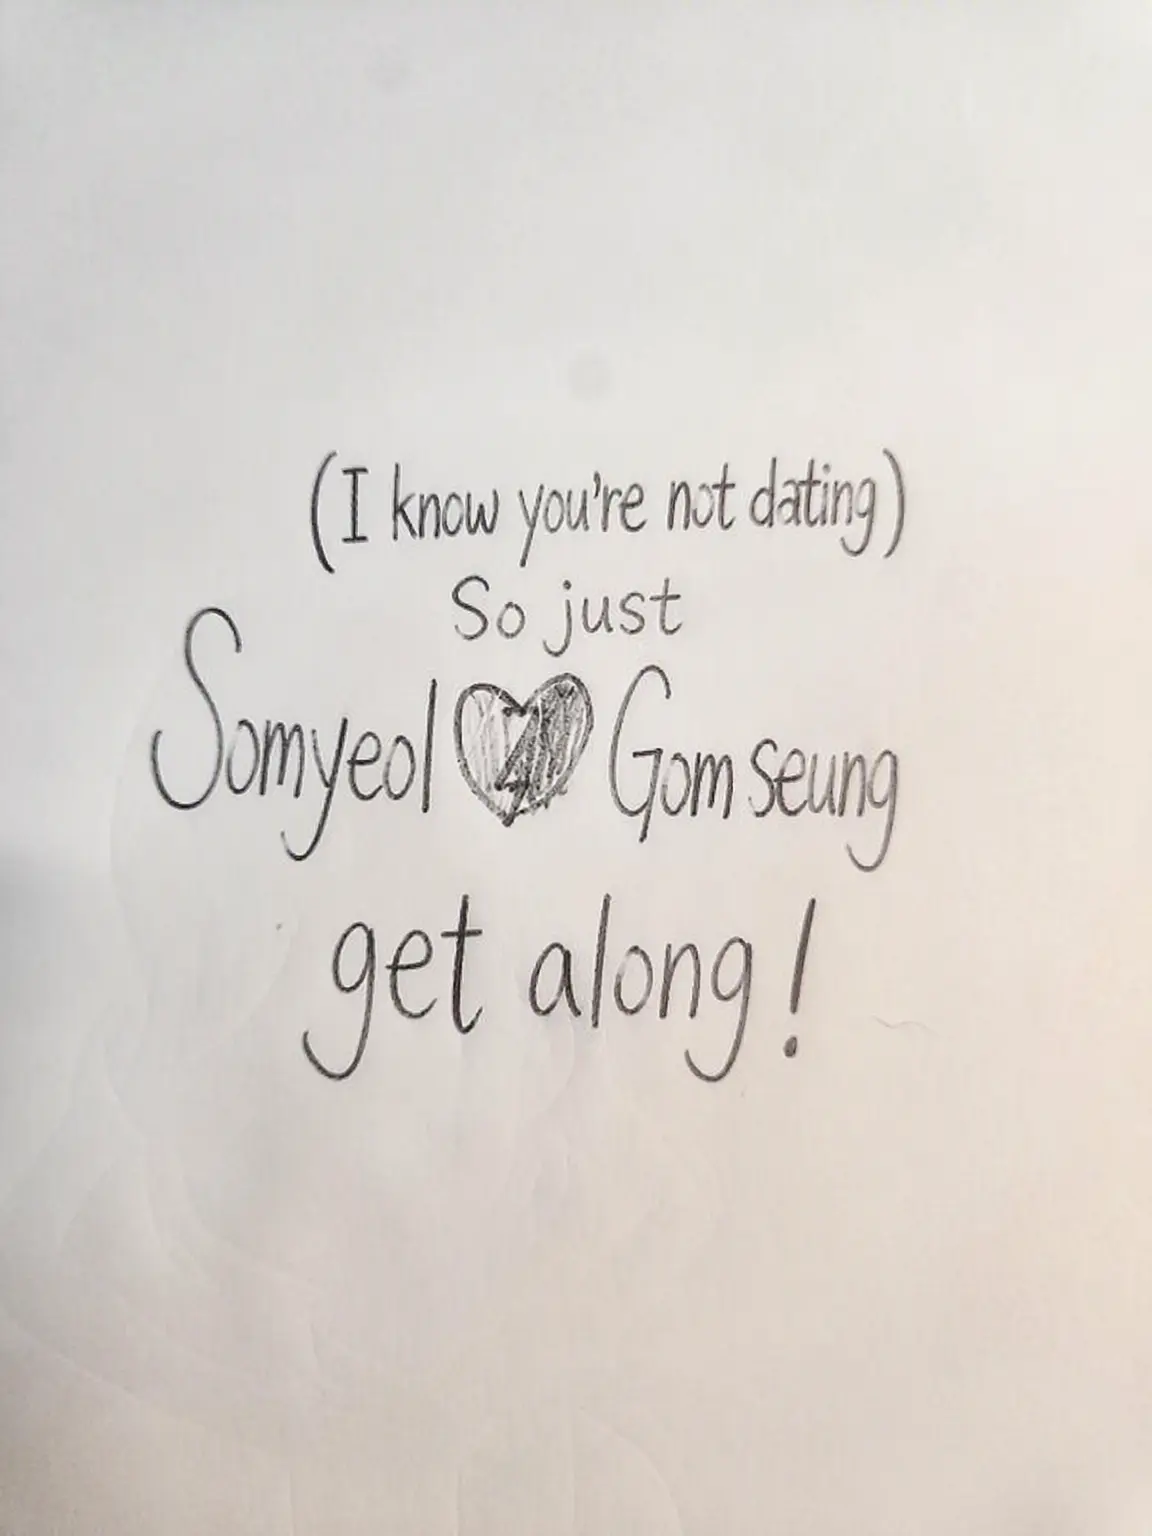 (I know you're not dating)
So just
Somyeol Gomseung
get along!